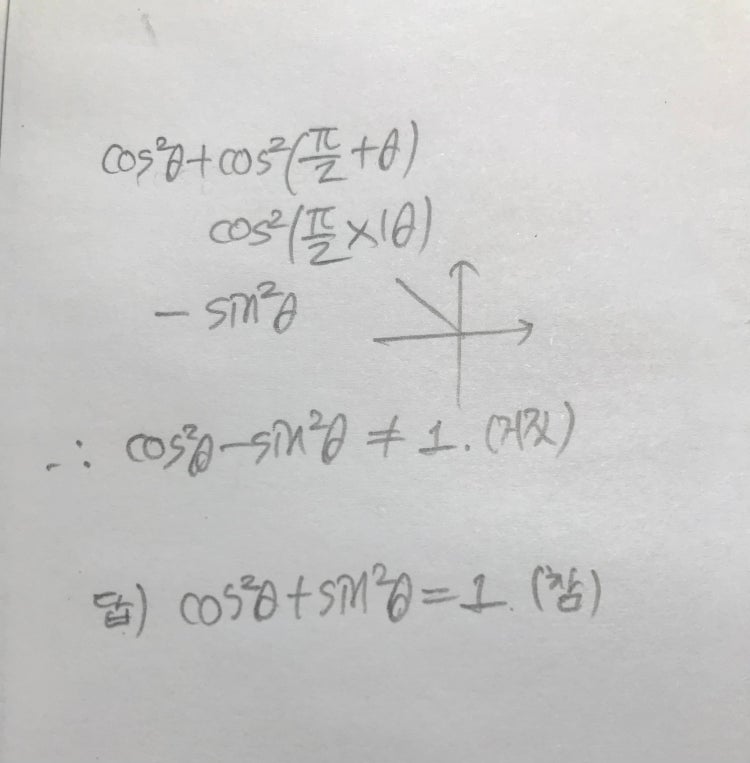 cos²θ+cos²(π/2+θ)
cos²(π/2×1θ)
- sin²θ
∴ cos²θ-sin²θ ≠ 1. (거짓)
답) cos²θ+sin²θ=1. (참)